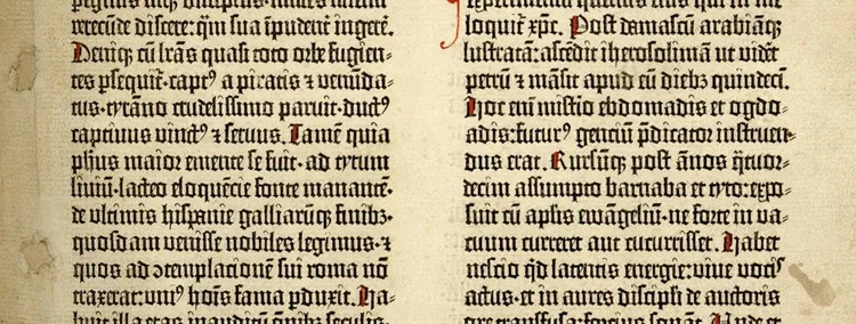 verecūde discere: q̄m sua īpudent̄ ingerē.
Deniq; cū lr̄as quasi toto orbe fugien-
tes ꝑsequit̄·captꝰ a piratis ⁊ venūda-
tus·tyrāno crudelissimo paruit·ductꝰ
captiuus vinctꝰ ⁊ seruus. Tamē quia
ph̄us maior emente se fuit·ad tytum
liuiū·lacteo eloquēcie fonte manantē·
de vltimis hispanie galliarūq; finibꝫ·
quosdam venisse nobiles legimus·⁊
quos ad ꝯtemplationē sui roma nō
traxerat:vniꝰ hoīs fama ꝑduxit. Ha-
buit illa etas inauditū oīnibꝫ seculis·
loquit̄ xp̄c. Post damascū arabiāq;
lustratā:ascēdit iherosolimā ut vidēt
petrū ⁊ māsit apud eū diebꝫ quindecī.
Hoc enī mistio ebdomadis et ogdo-
adis:futurꝰ gentiū p̄dicator instruen-
dus erat. Rursūq; post ānos q̄tuor-
decim assumpto barnaba et tyto:expo-
suit cū apl̄is ewāgeliū·ne forte in va-
cuum curreret aut cucurrisset. Habet
nescio qd̄ latentis energie:viue vocꝭ
actus·et in aures discipli de auctoris
ore transfusa:fortius sonat. Unde et